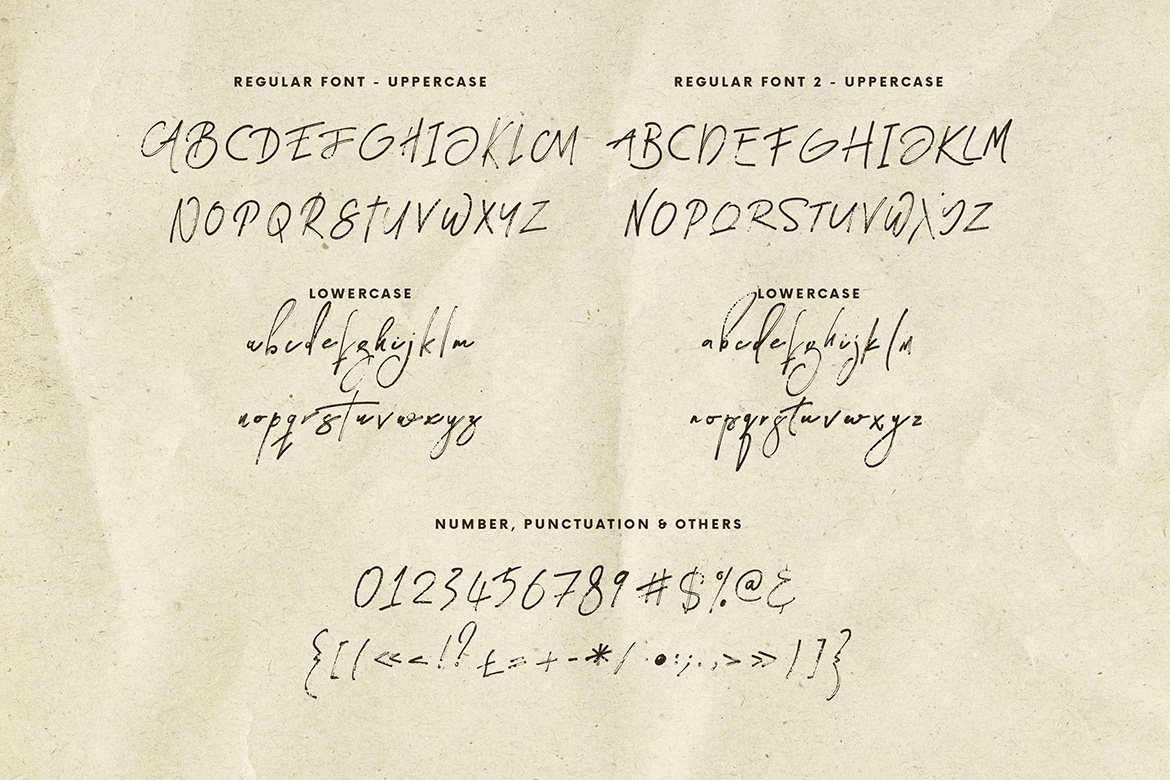 REGULAR FONT - UPPERCASE
ABCDEFGHIJKLM
NOPQRSTUVWXYZ
LOWERCASE
abcdefghijklm
nopqrstuvwxyz
REGULAR FONT 2 - UPPERCASE
ABCDEFGHIJKLM
NOPQRSTUVWXYZ
LOWERCASE
abcdefghijklm
nopqrstuvwxyz
NUMBER, PUNCTUATION & OTHERS
0123456789#$%@&
{[(«<!?±=+-*/·•:;.,>»)]}